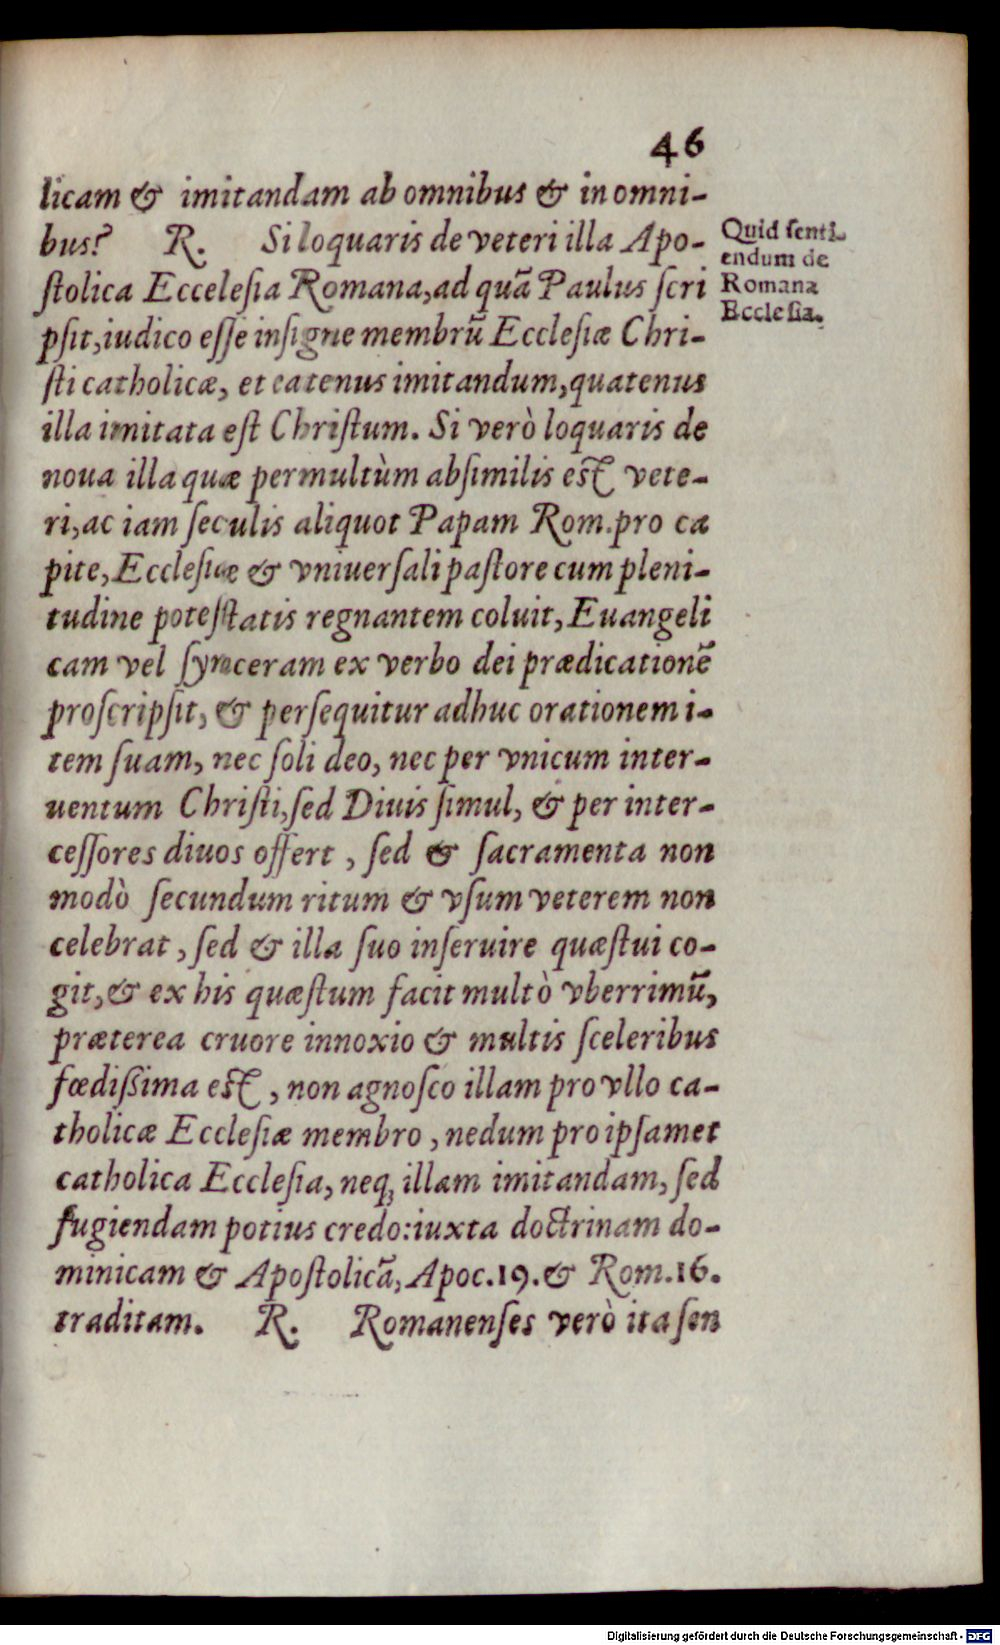 46
licam & imitandam ab omnibus & in omni-
bus? R. Si loquaris de veteri illa Apo-
ſtolica Ecceleſia Romana, ad quã Paulus ſcri
pſit, iudico eſſe inſigne membrũ Eccleſiæ Chri-
ſti catholicæ, et eatenus imitandum, quatenus
illa imitata eſt Chriſtum. Si verò loquaris de
noua illa quæ permultùm abſimilis eſt vete-
ri, ac iam ſeculis aliquot Papam Rom. pro ca
pite, Eccleſiæ & vniuerſali paſtore cum pleni-
tudine poteſtatis regnantem coluit, Euangeli
cam vel ſynceram ex verbo dei prædicationẽ
proſcripſit, & perſequitur adhuc orationem i-
tem ſuam, nec ſoli deo, nec per vnicum inter-
uentum Chriſti, ſed Diuis ſimul, & per inter-
ceſſores diuos offert, ſed & ſacramenta non
modò ſecundum ritum & vſum veterem non
celebrat, ſed & illa ſuo inſeruire quæſtui co-
git, & ex his quæſtum facit multò vberrimũ,
præterea cruore innoxio & multis ſceleribus
fœdiſſima eſt, non agnoſco illam pro vllo ca-
tholicæ Eccleſiæ membro, nedum pro ipſamet
catholica Eccleſia, neq; illam imitandam, ſed
fugiendam potius credo: iuxta doctrinam do-
minicam & Apoſtolicã, Apoc. 19. & Rom. 16.
traditam. R. Romanenſes verò ita ſen
Quid ſenti-
endum de
Romana
Eccleſia.
Digitalisierung gefördert durch die Deutsche Forschungsgemeinschaft - DFG